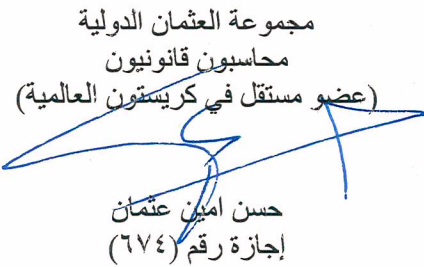 مجموعة العثمان الدولية
محاسبون قانونيون
(عضو مستقل في كريستون العالمية)
حسن امين عثمان
إجازة رقم (٦٧٤)